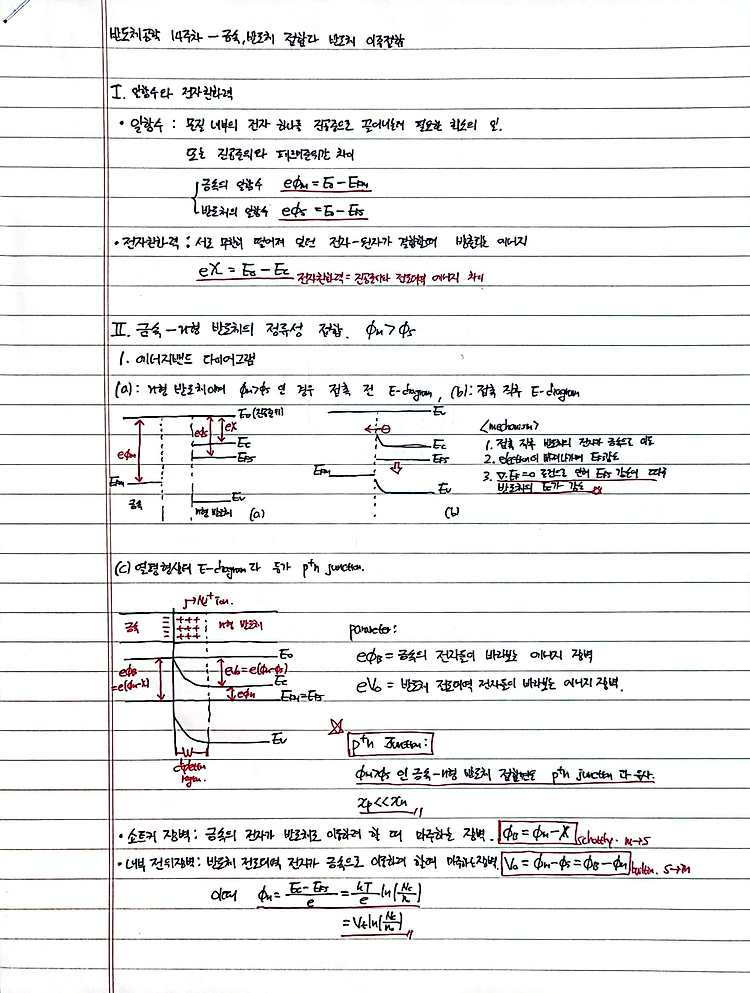 반도체공학 14주차 - 금속, 반도체 접합과 반도체 이종접합
I. 일함수와 전자친화력
• 일함수 : 물질 내부의 전자 하나를 진공중으로 끌어내는데 필요한 최소의 일.
또는 진공준위와 페르미준위간 차이
금속의 일함수 eϕm = E0 - EFm
반도체의 일함수 eϕs = E0 - EFs
• 전자친화력 : 서로 무한히 떨어져 있던 전자-원자가 결합할때 방출되는 에너지
eχ = E0 - Ec 전자친화력 = 진공준위와 전도대역 에너지 차이
II. 금속 - n형 반도체의 정류성 접합. ϕm > ϕs
1. 에너지밴드 다이어그램
(a) : n형 반도체이며 ϕm>ϕs 인 경우 접촉 전 E-diagram, (b) : 접촉 직후 E-diagram
E0 (진공준위)
eϕm
eϕs
eχ
Ec
EFs
EFm
Ev
금속
n형 반도체
(a)
E0
⊖
Ec
EFs
EFm
Ev
(b)
<mechanism>
1. 접촉 직후 반도체의 전자가 금속으로 이동
2. electron이 빠져나가며 EFs 감소
3. ∇·EF=0 조건으로 인해 EFs 감소에 따라
반도체의 Ec가 감소
(c) 열평형상태 E-diagram과 등가 p⁺n junction.
→ Nd⁺ ion.
금속
+++
+++
+++
n형 반도체
E0
eϕB
=e(ϕm-χ)
eV0=e(ϕm-ϕs)
Ec
eϕn
EFm=EFs
Ev
W
depletion
region.
parameter:
eϕB = 금속의 전자들이 바라보는 에너지 장벽
eV0 = 반도체 전도대역 전자들이 바라보는 에너지 장벽.
p⁺n Junction:
ϕm>ϕs 인 금속-n형 반도체 접합은 p⁺n junction 과 유사.
xp << xn
• 쇼트키 장벽 : 금속의 전자가 반도체로 이동하려 할 때 마주하는 장벽. ϕB = ϕm - χ schottky. m→s
• 내부 전위장벽 : 반도체 전도대역 전자가 금속으로 이동하려 할때 마주하는 장벽. V0 = ϕm - ϕs = ϕB - ϕn builtin. s→m
이때 ϕn = (Ec - EFs)/e = kT/e ln(Nc/n0)
= Vt ln(Nc/n0)